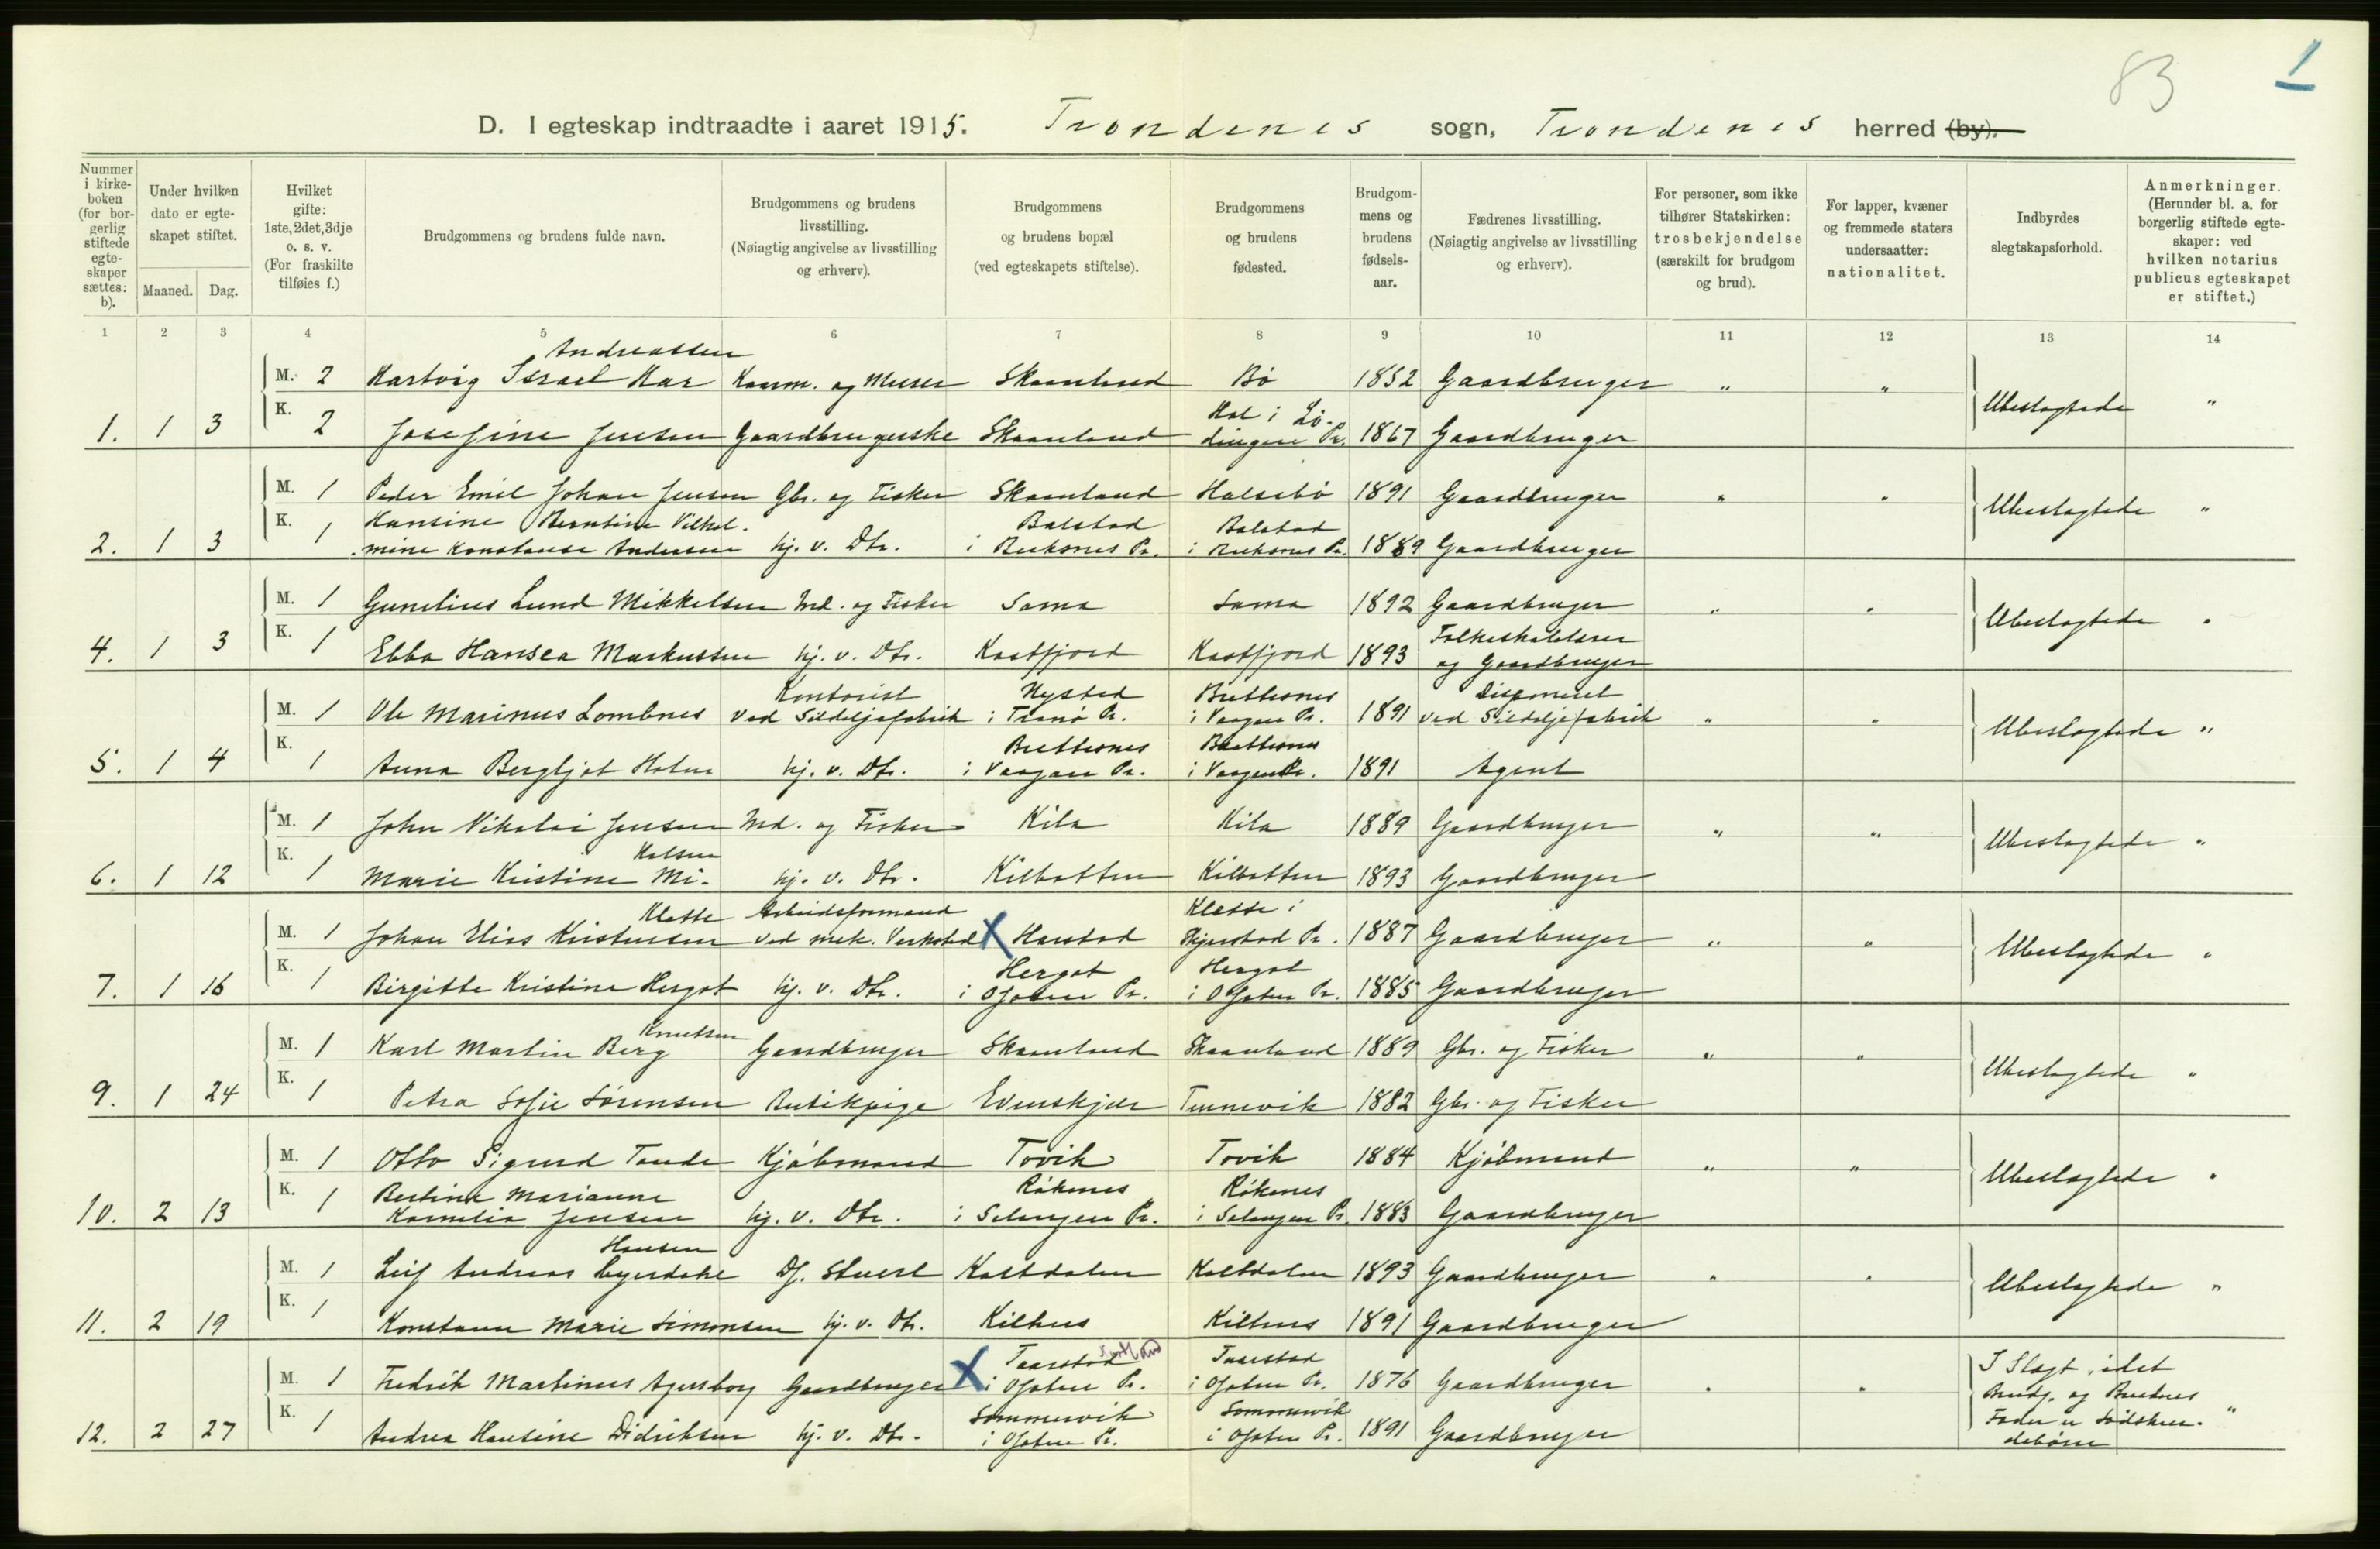 83 1
D. I egteskap indtraadte i aaret 1915. Trondenes sogn, Trondenes herred (by).
Nummer i kirkeboken (for borgerlig stiftede egteskaper sættes: b).
Under hvilken dato er egteskapet stiftet.
Maaned. Dag.
Hvilket gifte: 1ste, 2det, 3dje o. s. v. (For fraskilte tilføies f.)
Brudgommens og brudens fulde navn.
Brudgommens og brudens livsstilling. (Nøiagtig angivelse av livsstilling og erhverv).
Brudgommens og brudens bopæl (ved egteskapets stiftelse).
Brudgommens og brudens fødested.
Brudgommens og brudens fødselsaar.
Fædrenes livsstilling. (Nøiagtig angivelse av livsstilling og erhverv).
For personer, som ikke tilhører Statskirken: trosbekjendelse (særskilt for brudgom og brud).
For lapper, kvæner og fremmede staters undersaatter: nationalitet.
Indbyrdes slegtskapsforhold.
Anmerkninger. (Herunder bl. a. for borgerlig stiftede egteskaper: ved hvilken notarius publicus egteskapet er stiftet.)
1 2 3 4 5 6 7 8 9 10 11 12 13 14
Andreassen
M. 2 Hartvig Israel Kaarm. og Murer Skaanland Bø 1852 Gaardbruger " "
Hol i Lö-
1. 1 3 K. 2 Josefine Jensen Gaardbrugerske Skaanland dingen Pr. 1867 Gaardbruger Ubeslagtede "
M. 1 Peder Emil Johan Jensen Gbr. og Fisker Skaanland Halsebö 1891 Gaardbruger " "
Hansine Berntine Vilhel- Balstad Balstad
2. 1 3 K. 1 mine Konstanse Andersen hj. v. Dtr. i Buksnes Pr. i Buksnes Pr. 1889 Gaardbruger Ubeslagtede "
M. 1 Gunelius Lund Mikkelsen Ind. og Fisker Sama Sama 1892 Gaardbruger " "
Folkeskolelærer
4. 1 3 K. 1 Ebba Hansea Markussen hj. v. Dtr. Kastfjord Kastfjord 1893 og Gaardbruger Ubeslagtede "
Kontorist Nysted Brettesnes Disponent
M. 1 Ole Marinus Lombnes ved Sildoljefabrik i Tranö Pr. i Vaagan Pr. 1891 ved Sildoljefabrik " "
Brettesnes Brettesnes
5. 1 4 K. 1 Anna Bergljot Holm hj. v. Dtr. i Vaagan Pr. i Vaagan Pr. 1891 Agent Ubeslagtede "
M. 1 John Nikolai Jensen Ind. og Fisker Kila Kila 1889 Gaardbruger " "
kalsen
6. 1 12 K. 1 Marie Kristine Mi- hj. v. Dtr. Kilbotten Kilbotten 1893 Gaardbruger Ubeslagtede "
Klette Arbeidsformand Klette i
M. 1 Johan Elias Kristensen ved mek. Verksted X Harstad Skjerstad Pr. 1887 Gaardbruger " "
Hergot Hergot
7. 1 16 K. 1 Birgitte Kristine Hergot hj. v. Dtr. i Ofoten Pr. i Ofoten Pr. 1885 Gaardbruger Ubeslagtede "
Knutsen
M. 1 Karl Martin Berg Gaardbruger Skaanland Skaanland 1889 Gbr. og Fisker " "
9. 1 24 K. 1 Petra Sofie Sörensen Butikpige Evenskjær Tennevik 1882 Gbr. og Fisker Ubeslagtede "
M. 1 Otto Sigurd Tande Kjöbmand Tovik Tovik 1884 Kjöbmand " "
Bertine Marianne Rökenes Rökenes
10. 2 13 K. 1 Kornelia Jensen hj. v. Dtr. i Salangen Pr. i Salangen Pr. 1883 Gaardbruger Ubeslagtede "
Hansen
M. 1 Leif Andreas Df. Stuert Kaltdalen Kaltdalen 1893 Gaardbruger " "
11. 2 19 K. 1 Konstanse Marie Simonsen hj. v. Dtr. Kilhus Kilhus 1891 Gaardbruger Ubeslagtede "
Taarstad Taarstad I Slægt, idet
M. 1 Fredrik Martinus Agersborg Gaardbruger X i Ofoten Pr. i Ofoten Pr. 1876 Gaardbruger " " Brudg. og Brudens
Sommervik Sommervik Fader er Södsken-
12. 2 27 K. 1 Andrea Hansine Didriksen hj. v. Dtr. i Ofoten Pr. i Ofoten Pr. 1891 Gaardbruger debörn "